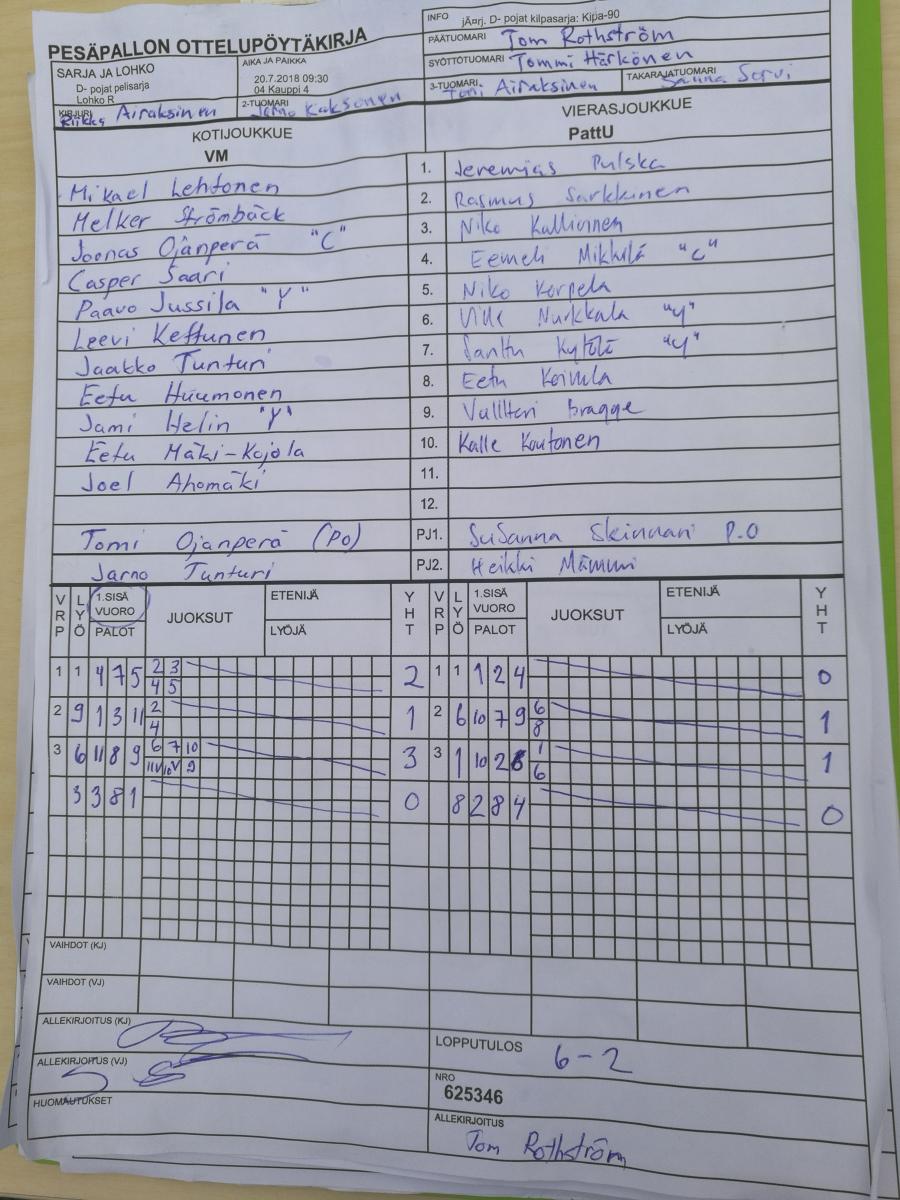 PESÄPALLON OTTELUPÖYTÄKIRJA
INFO jÄ¤rj. D- pojat kilpasarja: Kipa-90
PÄÄTUOMARI Tom Rothström
SYÖTTÖTUOMARI Tommi Härkönen
3-TUOMARI Toni Airaksinen TAKARAJATUOMARI Sanna Sorvi
SARJA JA LOHKO
D- pojat pelisarja
Lohko R
AIKA JA PAIKKA
20.7.2018 09:30
04 Kauppi 4
KIRJURI Riikka Airaksinen
2-TUOMARI Jarno Kaksonen
KOTIJOUKKUE
VM
VIERASJOUKKUE
PattU
Mikael Lehtonen 1. Jeremias Pulska
Melker Strömbäck 2. Rasmus Sarkkinen
Joonas Ojanperä "C" 3. Niko Kallionen
Casper Saari 4. Eemeli Mikkilä "C"
Paavo Jussila "Y" 5. Niko Korpela
Leevi Kettunen 6. Ville Nurkkala "y"
Jaakko Tunturi 7. Santtu Kytölä "y"
Eetu Huumonen 8. Eetu Koivula
Jami Helin "Y" 9. Valtteri Bragge
Eetu Mäki-Kojola 10. Kalle Koutonen
Joel Ahomäki 11.
12.
Tomi Ojanperä (PO) PJ1. Susanna Skinnari P.O
Jarno Tunturi PJ2. Heikki Mämmi
VRP LYÖ 1.SISÄ VUORO PALOT JUOKSUT ETENIJÄ LYÖJÄ YHT VRP LYÖ 1.SISÄ VUORO PALOT JUOKSUT ETENIJÄ LYÖJÄ YHT
1 1 4 7 5 2 3 2 1 1 1 2 4 0
4 5
2 9 1 3 11 2 1 2 6 10 7 9 6 1
4 8
3 6 11 8 9 6 7 10 3 3 1 10 2 1 1
11V 10V 9 6
3 3 8 1 0 8 2 8 4 0
VAIHDOT (KJ)
VAIHDOT (VJ)
ALLEKIRJOITUS (KJ)
LOPPUTULOS 6-2
ALLEKIRJOITUS (VJ)
NRO
625346
HUOMAUTUKSET
ALLEKIRJOITUS
Tom Rothström